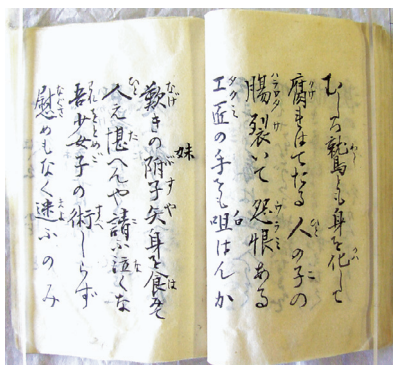 むしろ鷲とも身を化して
腐れはてたる人の子の
腸裂いて怨恨ある
工匠の手をも咀はんか
妹
歎きの附子矢身を食みて
人え堪へんや請ふ泣くな
吾少女子の術しらず
慰めもなく迷ふのみ